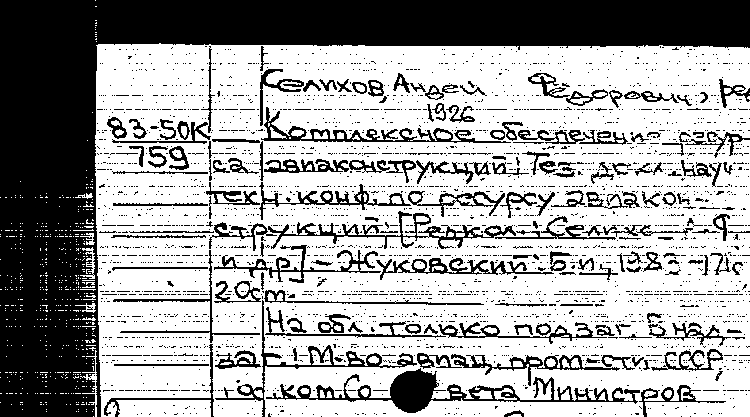 Селихов, Андей Фёдорович, ред
1926
83-50К Комплексное обеспечение ресур
759 са авиаконструкций: Тез. докл. науч.
техн. конф. по ресурсу авиакон-
струкций; [Редкол.: Селихо А.Ф.
и др.]. - Жуковский: Б.и., 1983 - 171с
20см.
На обл. только подзаг. В над-
заг.: М-во авиац. пром-сти СССР,
Гос. ком. Совета Министров